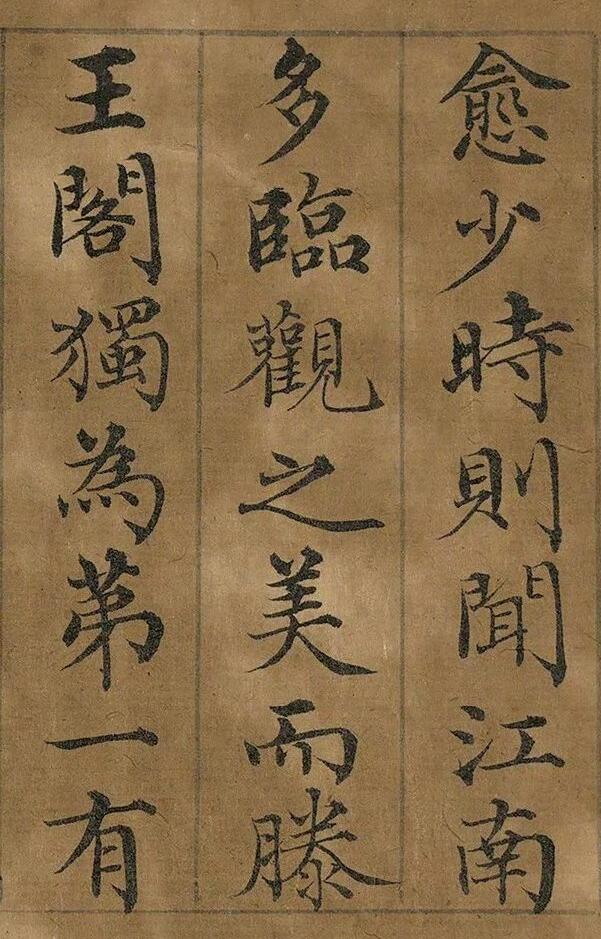 愈少時則聞江南
多臨觀之美而滕
王閣獨為第一有